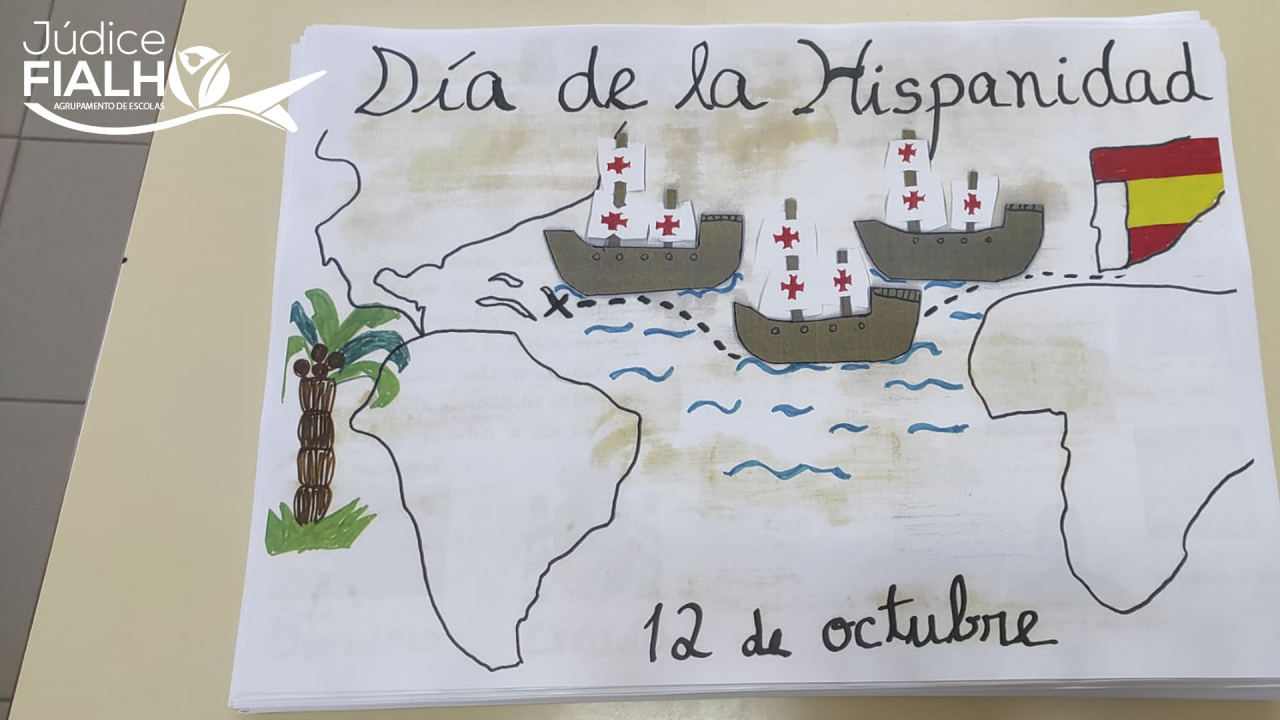 Júdice
FIALHO
AGRUPAMENTO DE ESCOLAS
Día de la Hispanidad
X
12 de octubre